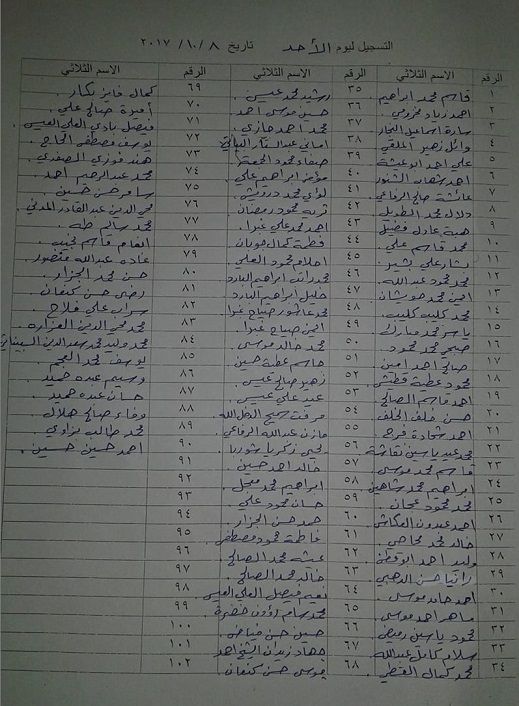 التسجيل ليوم الأحد تاريخ ٨ / ١٠ / ٢٠١٧
الرقم الاسم الثلاثي الرقم الاسم الثلاثي الرقم الاسم الثلاثي
١ قاسم محمد ابراهيم ٣٥ رشيد محمد عيسى ٦٩ كمال فايز بكار
٢ احمد زياد ٣٦ حسين موسى احمد ٧٠ اميرة صالح علي
٣ سارة اسماعيل النجار ٣٧ محمد احمد حجازي ٧١ فيصل العلي العيسى
٤ وائل زهير الملقي ٣٨ اماني عبد الستار ٧٢ يوسف مصطفى الحاج
٥ علي احمد ابو عيشة ٣٩ صفاء محمود الجمعة ٧٣ هند فوزي الصفدي
٦ احمد شهاب ٤٠ ابراهيم علي ٧٤ محمد عبد الرحيم احمد
٧ عائشة صالح الرفاعي ٤١ لؤي محمد درويش ٧٥ سامر حسن حسين
٨ دلال محمد الطويل ٤٢ محمود رمضان ٧٦ محي الدين عبد القادر المدني
٩ هبة عادل ٤٣ احمد علي ٧٧ محمد سالم طه
١٠ محمد قاسم علي ٤٤ فطمة كمال حوران ٧٨ انعام قاسم نجيب
١١ بشار علي بشير ٤٥ احلام محمود العلي ٧٩ غادة عبدالله منصور
١٢ محمد محمود عبدالله ٤٦ محمد رأفت ابراهيم البارد ٨٠ حسن محمد الجزار
١٣ ايمن محمد ٤٧ خليل ابراهيم البارد ٨١ رضى حسن كنعان
١٤ محمد كليب كليب ٤٨ محمد عاشور صياح ٨٢ سراب علي فلاح
١٥ ياسر محمد مبارك ٤٩ ايمن صياح ٨٣ محمد محي الدين
١٦ صبحي محمد محمود ٥٠ محمد خالد موسى ٨٤ محمد وليد محمد سعد الدين
١٧ صالح احمد امين ٥١ جاسم عطية حسين ٨٥ يوسف محمد العجم
١٨ محمود عطية ٥٢ زهير صالح عيسى ٨٦ وسيم عبده حميد
١٩ احمد قاسم الصالح ٥٣ عبد علي عيسى ٨٧ حسان عبده حميد
٢٠ حسن خلف الخلف ٥٤ مرفت سميح ٨٨ وفاء صالح هلال
٢١ احمد شحادة فرج ٥٥ مازن عبدالله الرفاعي ٨٩ محمد طالب نزاوي
٢٢ محمد عيد ياسين ٥٦ يحيى زكريا شوربا ٩٠ احمد حسين حسين
٢٣ قاسم محمد موسى ٥٧ خالد احمد حسين ٩١
٢٤ ابراهيم محمد شاهين ٥٨ ابراهيم محمد ٩٢
٢٥ محمد محمود عجان ٥٩ حسان محمود علي ٩٣
٢٦ احمد عبدون العكاش ٦٠ حمد حسن الجزار ٩٤
٢٧ خالد محمد ٦١ فاطمة محمود مصطفى ٩٥
٢٨ وليد احمد ابو قطن ٦٢ عيشه محمد الصالح ٩٦
٢٩ رانيا حسن الذهبي ٦٣ خالد محمد الصالح ٩٧
٣٠ احمد حامد موسى ٦٤ نعيم فيصل العلي العيسى ٩٨
٣١ ماهر احمد موسى ٦٥ محمد سام رؤوف خضرة ٩٩
٣٢ محمود ياسين رميض ٦٦ حسين حسن فياض ١٠٠
٣٣ سلام كامل عبدالله ٦٧ جهاد زيدان الشيخ احمد ١٠١
٣٤ محمد كمال القطر ٦٨ موسى حسن كنعان ١٠٢